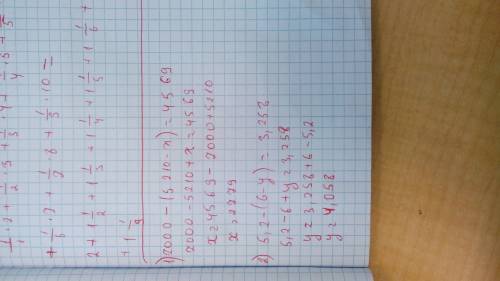 + 1/6 · 7 + 1/7 · 8 + 1/9 · 10 =
2 + 1 1/2 + 1 1/3 + 1 1/4 + 1 1/5 + 1 1/6 +
+ 1 1/9
1) 2000 - (5210 - x) = 4569
2000 - 5210 + x = 4569
x = 4569 - 2000 + 5210
x = 7779
2) 5,2 - (6 - y) = 3,258
5,2 - 6 + y = 3,258
y = 3,258 + 6 - 5,2
y = 4,058